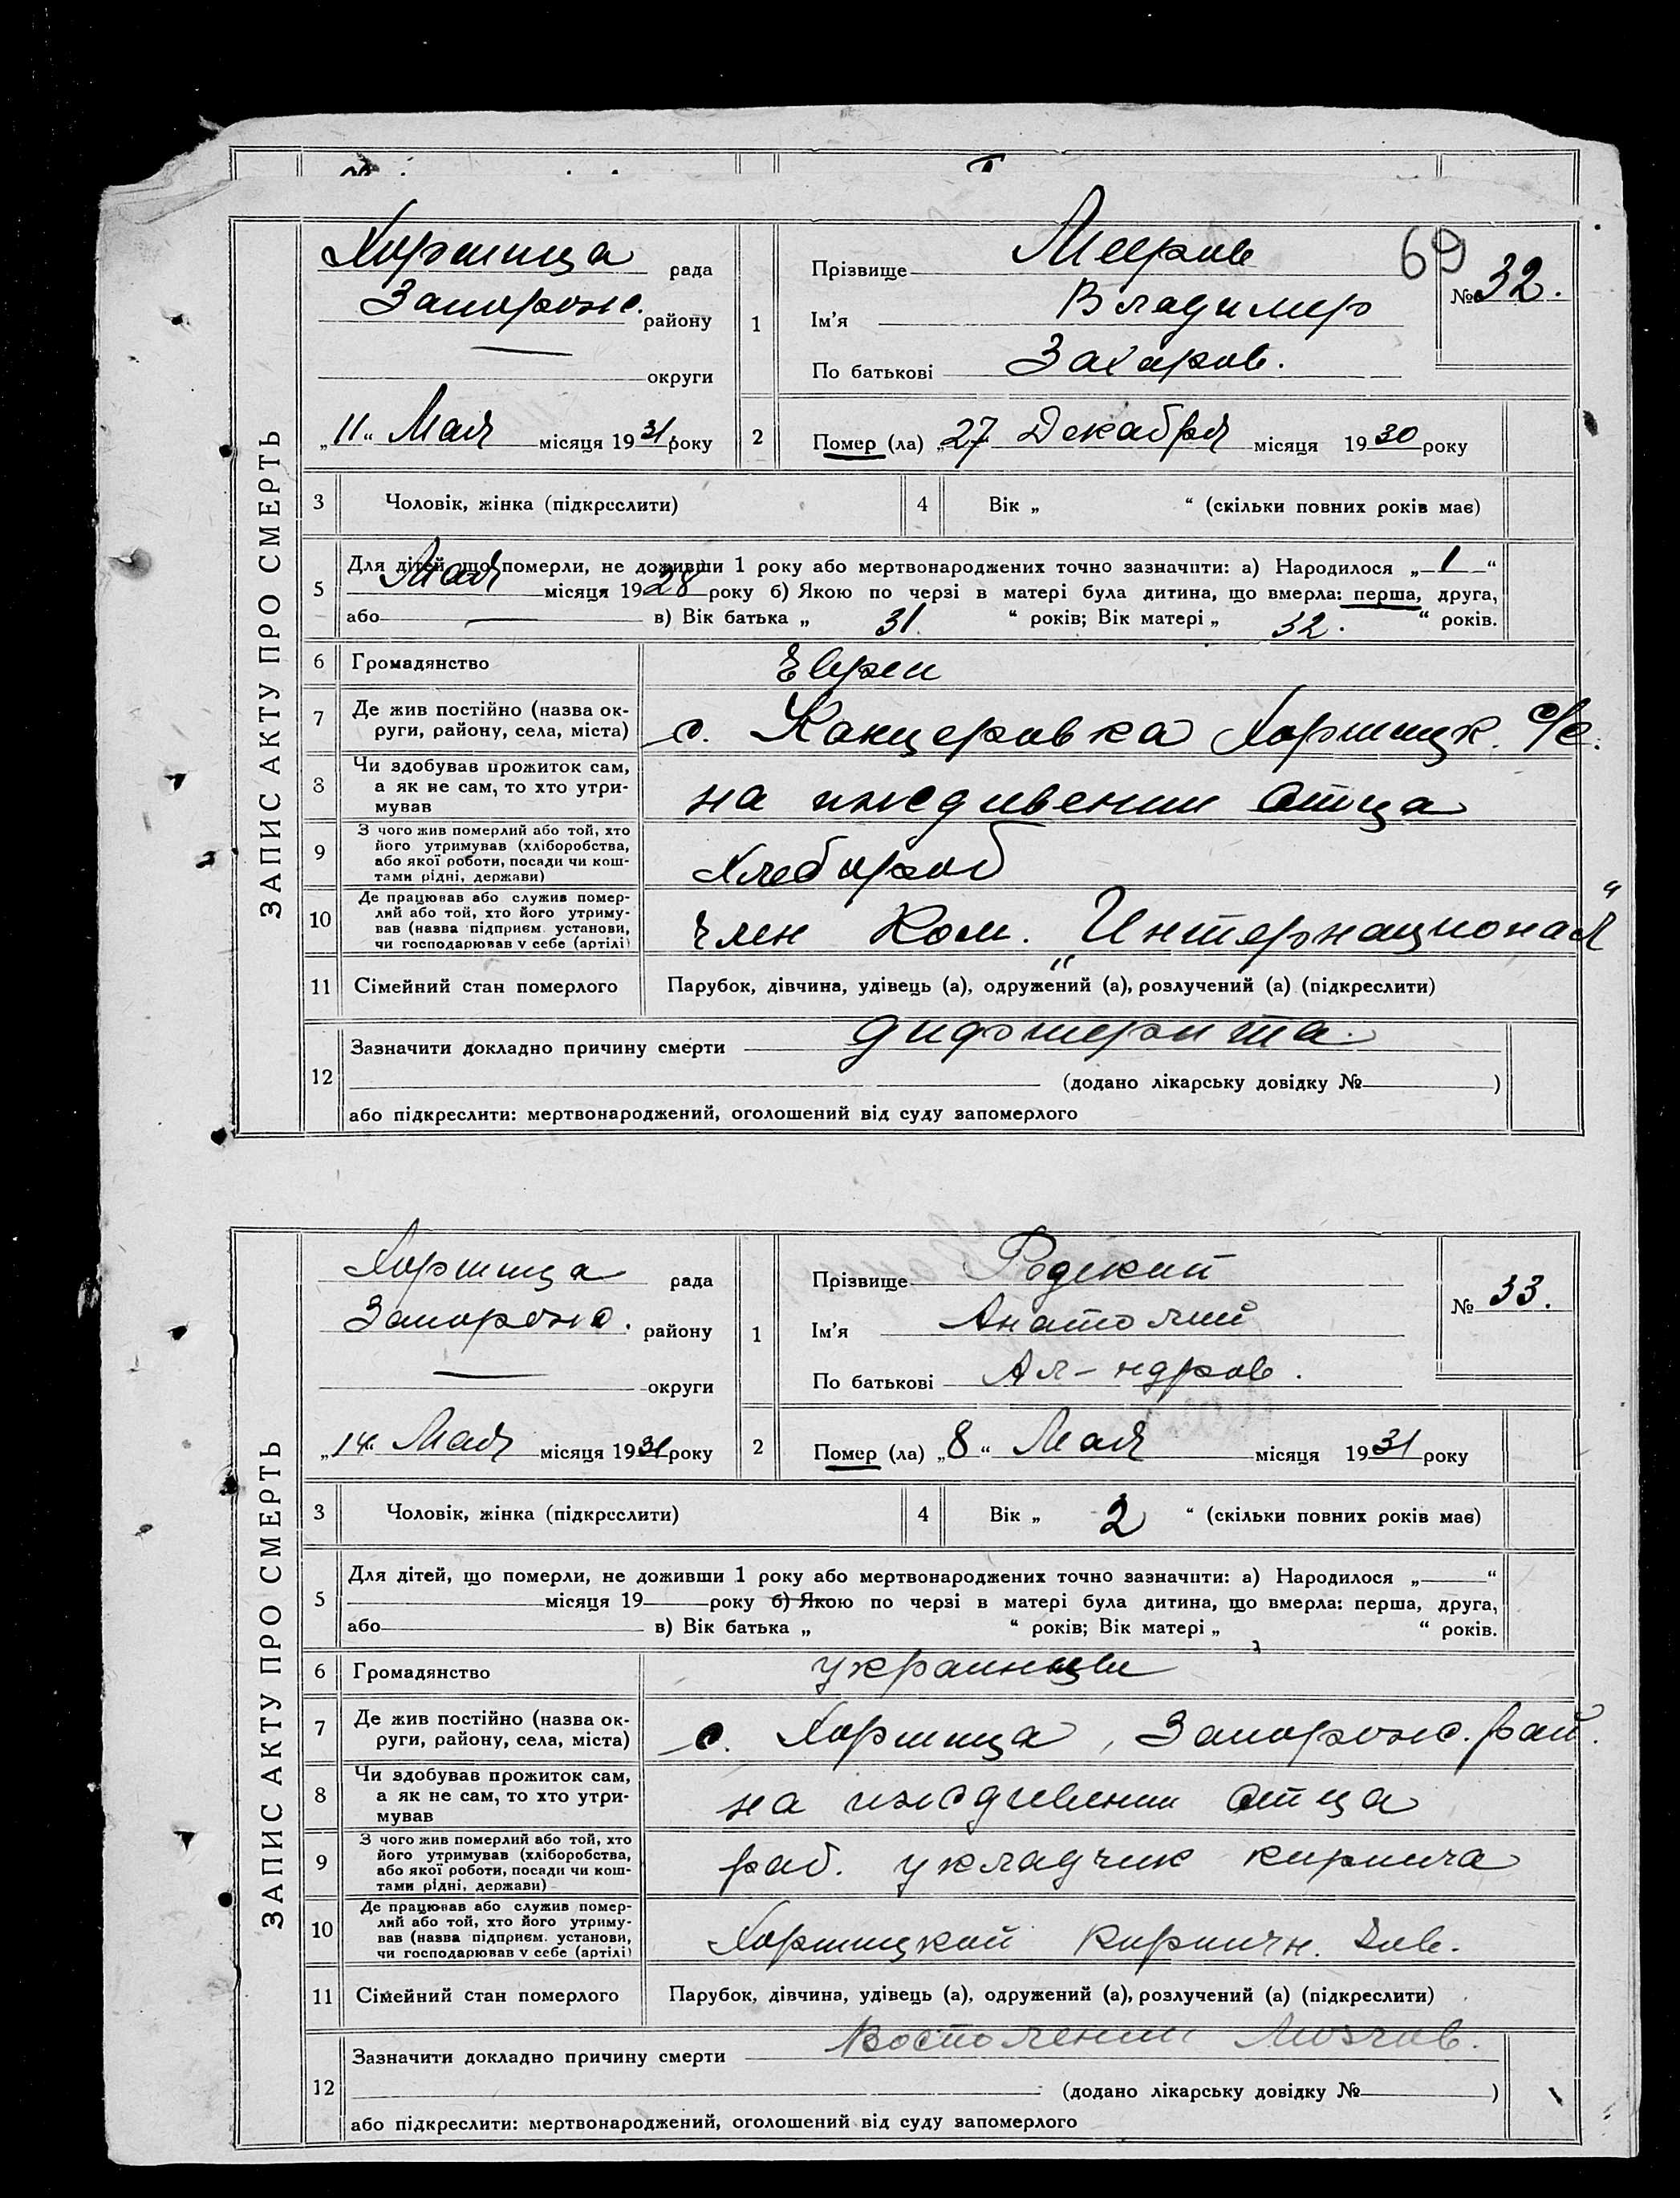 ЗАПИС АКТУ ПРО СМЕРТЬ
69
Хортица рада
Запорож. району
округи
„11“ Мая місяця 1931 року
1
Прізвище Мееров
Ім'я Владимир
По батькові Захаров.
№ 32.
2
Помер (ла) „27 Декабря місяця 1930 року
3 Чоловік, жінка (підкреслити)
4 Вік „ “ (скільки повних років має)
5 Для дітей, що померли, не доживши 1 року або мертвонароджених точно зазначити: а) Народилося „1“
Мая місяця 1928 року б) Якою по черзі в матері була дитина, що вмерла: перша, друга,
або в) Вік батька „ 31 “ років; Вік матері „ 32. “ років.
6 Громадянство Евреи
7 Де жив постійно (назва ок-
руги, району, села, міста) с. Канцеровка Хортицк. с/с.
8 Чи здобував прожиток сам,
а як не сам, то хто утри-
мував на иждивении отца
9 З чого жив померлий або той, хто
його утримував (хліборобства,
або якої роботи, посади чи кош-
тами рідні, держави) Хлебороб
10 Де працював або служив помер-
лий або той, хто його утриму-
вав (назва підприєм. установи,
чи господарював у себе (артілі) член Ком. „Интернационал“
11 Сімейний стан померлого Парубок, дівчина, удівець (а), одружений (а), розлучений (а) (підкреслити)
12 Зазначити докладно причину смерти дифтерита.
(додано лікарську довідку № )
або підкреслити: мертвонароджений, оголошений від суду запомерлого
ЗАПИС АКТУ ПРО СМЕРТЬ
Хортица рада
Запорож. району
округи
„14“ Мая місяця 1931 року
1
Прізвище Редский
Ім'я Анатолий
По батькові Ал-ндров.
№ 33.
2
Помер (ла) „8“ Мая місяця 1931 року
3 Чоловік, жінка (підкреслити)
4 Вік „ 2 “ (скільки повних років має)
5 Для дітей, що померли, не доживши 1 року або мертвонароджених точно зазначити: а) Народилося „ “
місяця 19 року б) Якою по черзі в матері була дитина, що вмерла: перша, друга,
або в) Вік батька „ “ років; Вік матері „ “ років.
6 Громадянство украинцы
7 Де жив постійно (назва ок-
руги, району, села, міста) с. Хортица, Запорож. рай.
8 Чи здобував прожиток сам,
а як не сам, то хто утри-
мував на иждивении отца
9 З чого жив померлий або той, хто
його утримував (хліборобства,
або якої роботи, посади чи кош-
тами рідні, держави) раб. укладчик кирпича
10 Де працював або служив помер-
лий або той, хто його утриму-
вав (назва підприєм. установи,
чи господарював у себе (артілі) Хортицкий кирпичн. Зав.
11 Сімейний стан померлого Парубок, дівчина, удівець (а), одружений (а), розлучений (а) (підкреслити)
12 Зазначити докладно причину смерти Восполении Мозгов.
(додано лікарську довідку № )
або підкреслити: мертвонароджений, оголошений від суду запомерлого